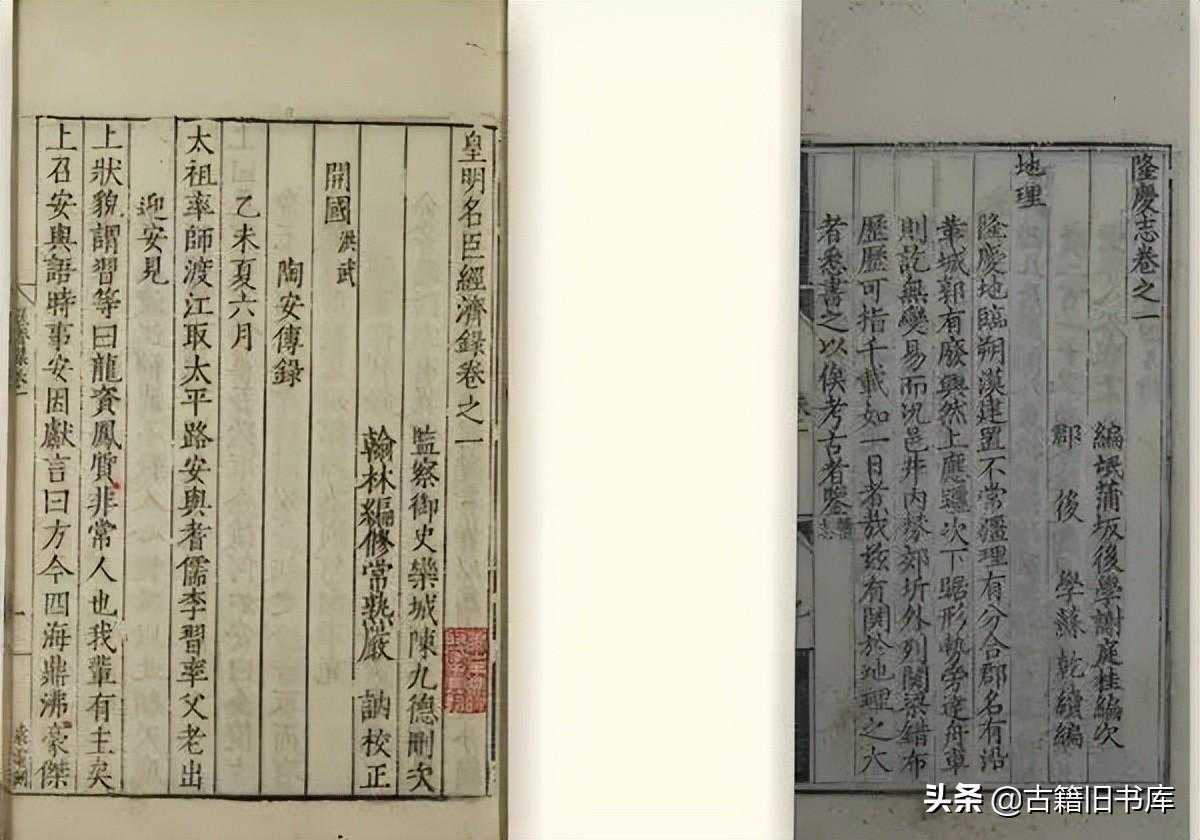 皇明名臣經濟錄卷之一
監察御史欒城陳九德刪次
翰林編修常熟嚴 訥校正
開國 洪武
陶安傳錄
乙未夏六月
太祖率師渡江取太平路安與耆儒李習率父老出
迎安見
上狀貌謂習等曰龍資鳳質非常人也我輩有主矣
上召安與語時事安因獻言曰方今四海鼎沸豪傑
隆慶志卷之一
編氓蒲坂後學謝庭桂編次
郡 後 學蘇 乾續編
地理
隆慶地臨朔漠建置不常疆理有分合郡名有沿
華城郭有廢興然上應躔次下踞形勢旁達舟車
則訖無變易而況邑井內棼郊圻外列關梁錯布
歷歷可指千載如一日者哉茲有關於地理之大
者悉書之以俟考古者鑒
头条 @古籍旧书库